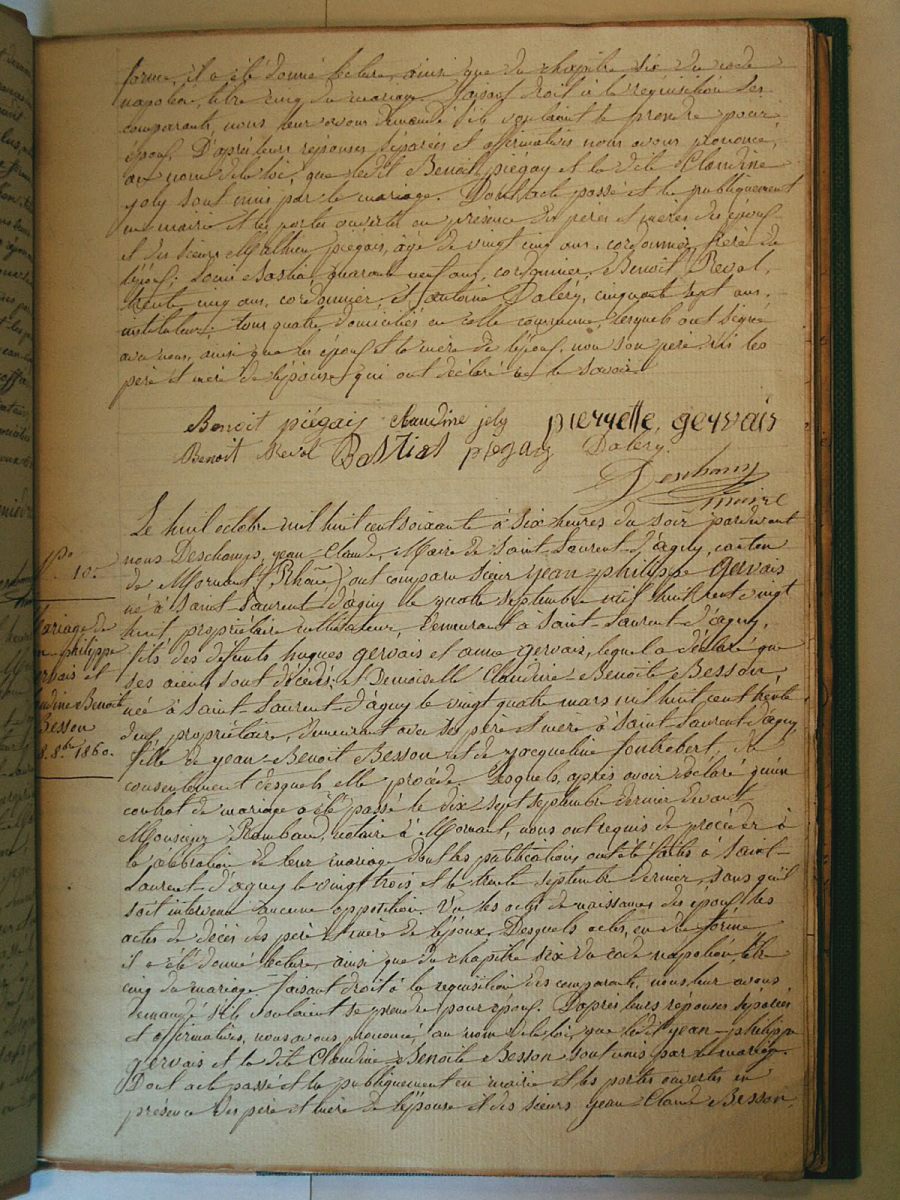 forme, il a été donné lecture, ainsi que du chapitre six du code
napoléon, titre cinq du mariage. faisant droit à la réquisition des
comparants, nous leur avons demandé s'ils voulaient se prendre pour
époux. D'après leurs réponses séparées et affirmatives nous avons prononcé,
au nom de la loi, que ledit Benoît piégay et la dite Claudine
joly sont unis par le mariage. Dont acte passé et lu publiquement
en mairie et les portes ouvertes en présence des pères et mères des époux
et des sieurs Mathieu piégais, âgé de vingt cinq ans, cordonnier, frère de
l'époux; Louis quarante neuf ans, cordonnier, Benoît Revol,
trente cinq ans, cordonnier, et antoine Daléry, cinquante sept ans,
instituteur: tous quatre domiciliés en cette commune, lesquels ont signé
avec nous, ainsi que les époux et la mère de l'époux, non son père ni les
père et mère de l'épouse, qui ont déclaré ne le savoir.
Benoit piégais claudine joly pierrette gervais
Benoit Revol piegay Daléry
Deschamps
maire
Le huit octobre mil huit cent soixante à six heures du soir pardevant
nous Deschamps, jean-Claude, Maire de Saint-Laurent-d'agny, canton
de Mornant (Rhône) ont comparu sieur jean-philippe Gervais
né à Saint-Laurent-d'agny le quatre septembre mil huit cent vingt
huit propriétaire cultivateur, demeurant à Saint-Laurent-d'agny,
fils des défunts hugues gervais et anna gervais, lequel a déclaré que
ses aieux sont décédés; et Demoiselle Claudine-Benoîte Besson
née à Saint-Laurent-d'agny le vingt quatre mars mil huit cent trente
deux, propriétaire, demeurant avec ses père et mère à Saint-Laurent d'agny
fille de jean-Benoît Besson et de jacqueline fontrobert, du
consentement desquels elle procède. Lesquels, après avoir déclaré qu'un
contrat de mariage a été passé le dix-sept septembre dernier devant
Monsieur Rambaud, notaire à Mornant, nous ont requis de procéder à
la célébration de leur mariage dont les publications ont été faites à Saint-
Laurent-d'agny le vingt trois et le trente septembre dernier, sans qu'il
soit intervenu aucune opposition. Vu les actes de naissances des époux les
actes de décès des père et mère de l'époux. Desquels actes, en due forme
il a été donné lecture, ainsi que du chapitre six du code napoléon, titre
cinq du mariage. faisant droit à la requisition des comparants, nous leur avons
demandé s'ils voulaient se prendre pour époux. D'après leurs réponses séparées
et affirmatives, nous avons prononcé, au nom de la loi, que ledit jean-philippe
gervais et la dite Claudine-Benoîte Besson sont unis par le mariage.
Dont acte passé et lu publiquement en mairie et les portes ouvertes en
présence des père et mère de l'épouse et des sieurs jean-Claude Besson,
No 10.
ariage de
n-philippe
rvais et
udine Benoîte
Besson
8. 8.bre 1860.